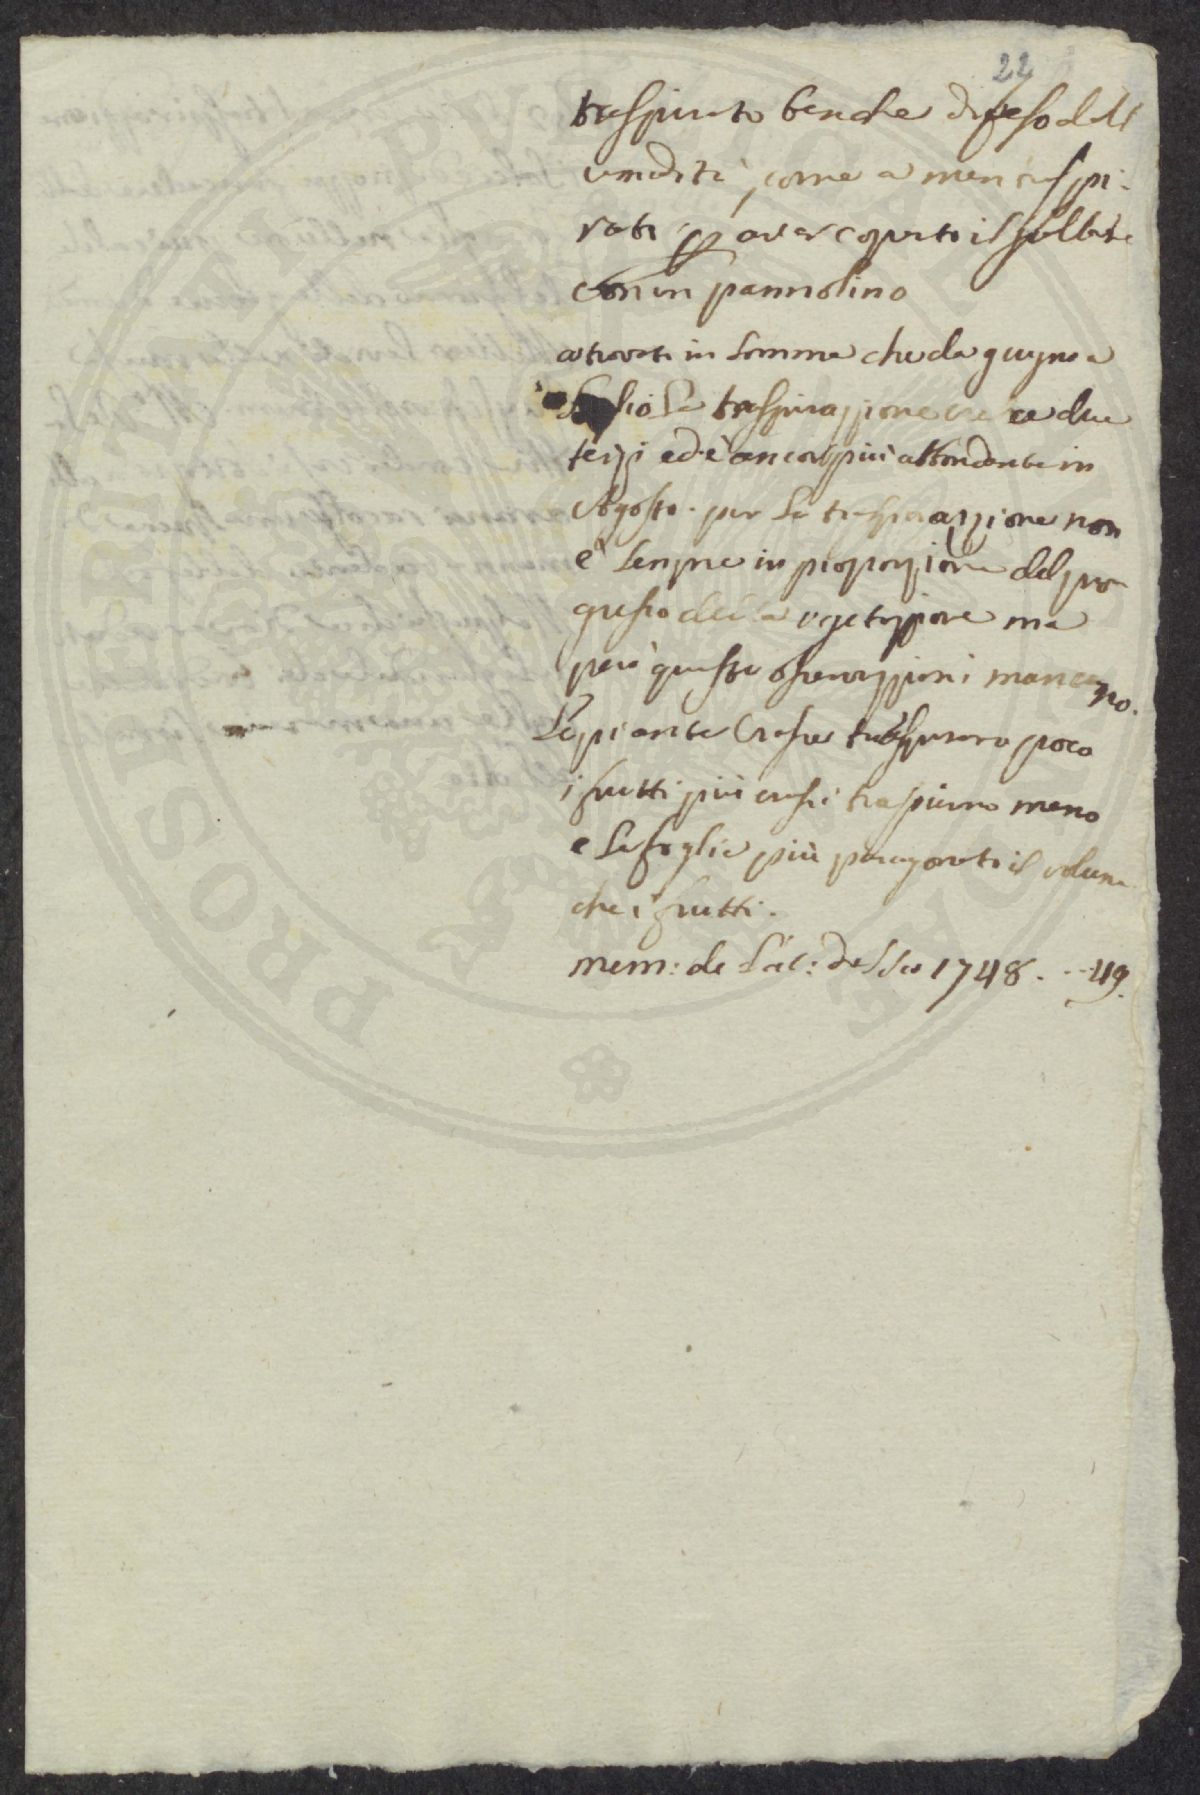 22
traspirato benche difeso dall
umidità, come a men traspi:
rati per aver coperto il
con un pannolino
a trovati in somma che da giugno a
luglio la traspirazzione cresce due
terzi ed è ancor più abbondante in
Agosto. per la traspirazzione non
è sempre in proporzione del pro
gresso della vegetazzione ma
però queste osservazzioni mancano.
Le piante Crasse traspirano poco
i frutti più crassi traspirano meno
e le foglie più paragonato il volume
che i frutti.
mem: de l'ac: des sc 1748. - - 49.